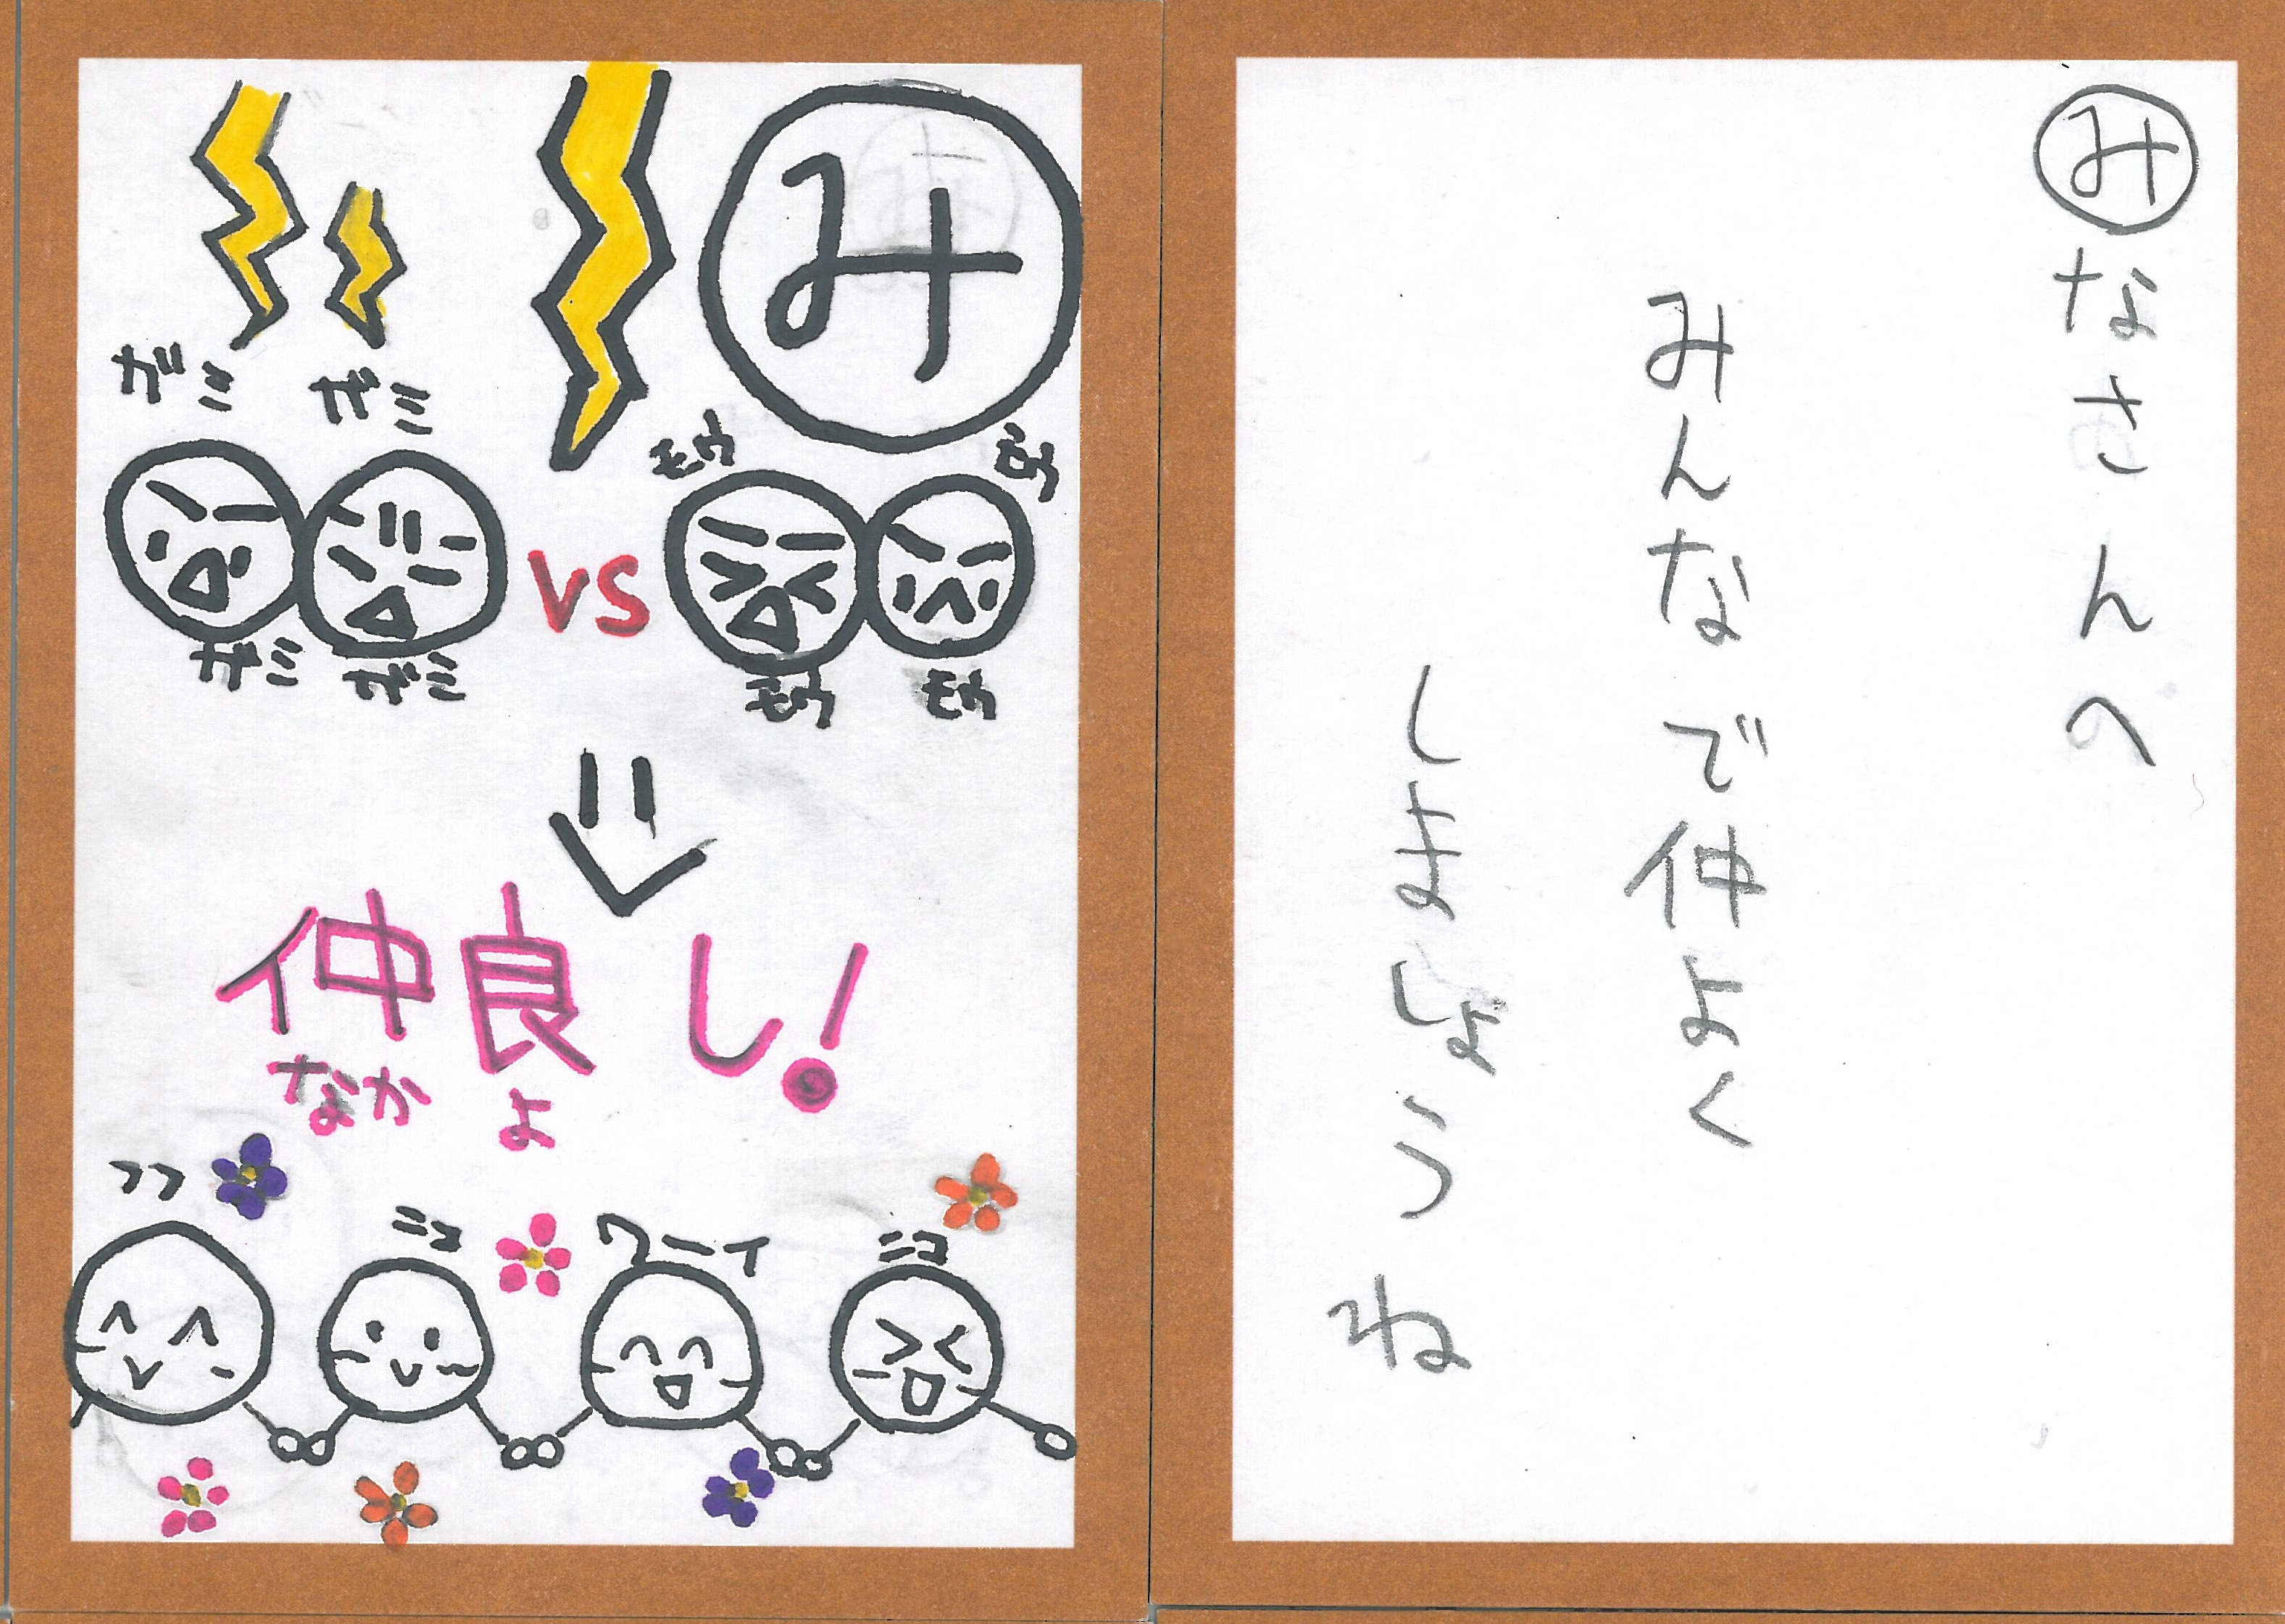 みなさんへ
みんなで仲よく
しましょうね
み
モウ
モウ
モウ
モウ
vs
仲良し!
なか
よ
フフ
ニコ
ワーイ
ニコ